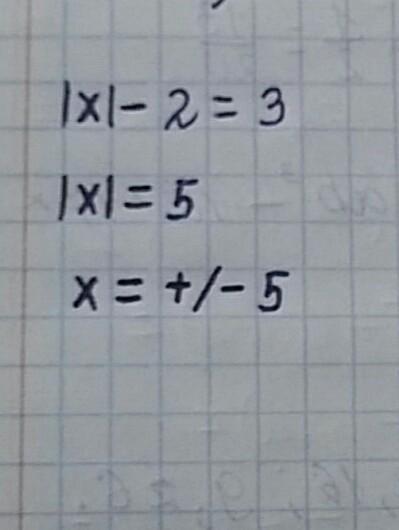 |x| - 2 = 3
|x| = 5
x = +/- 5